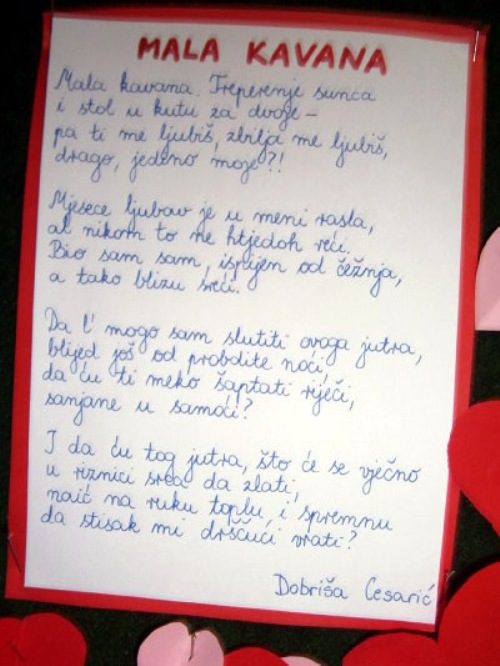 MALA KAVANA
Mala kavana. Treperenje sunca
i stol u kutu za dvoje –
pa ti me ljubiš, zbilja me ljubiš,
drago, jedeno moje?!
Mjesece ljubav je u meni rasla,
al nikom to ne htjedoh reći.
Bio sam sam, ispijen od čežnja,
a tako blizu sreći.
Da l' mogo sam slutiti ovoga jutra,
blijed još od probdite noći,
da ću ti meko šaptati riječi,
sanjane u samoći?
I da ću tog jutra, što će se vječno
u riznici srca da zlati,
naić na ruku toplu, i spremnu
da stisak mi dršćući vrati?
Dobriša Cesarić